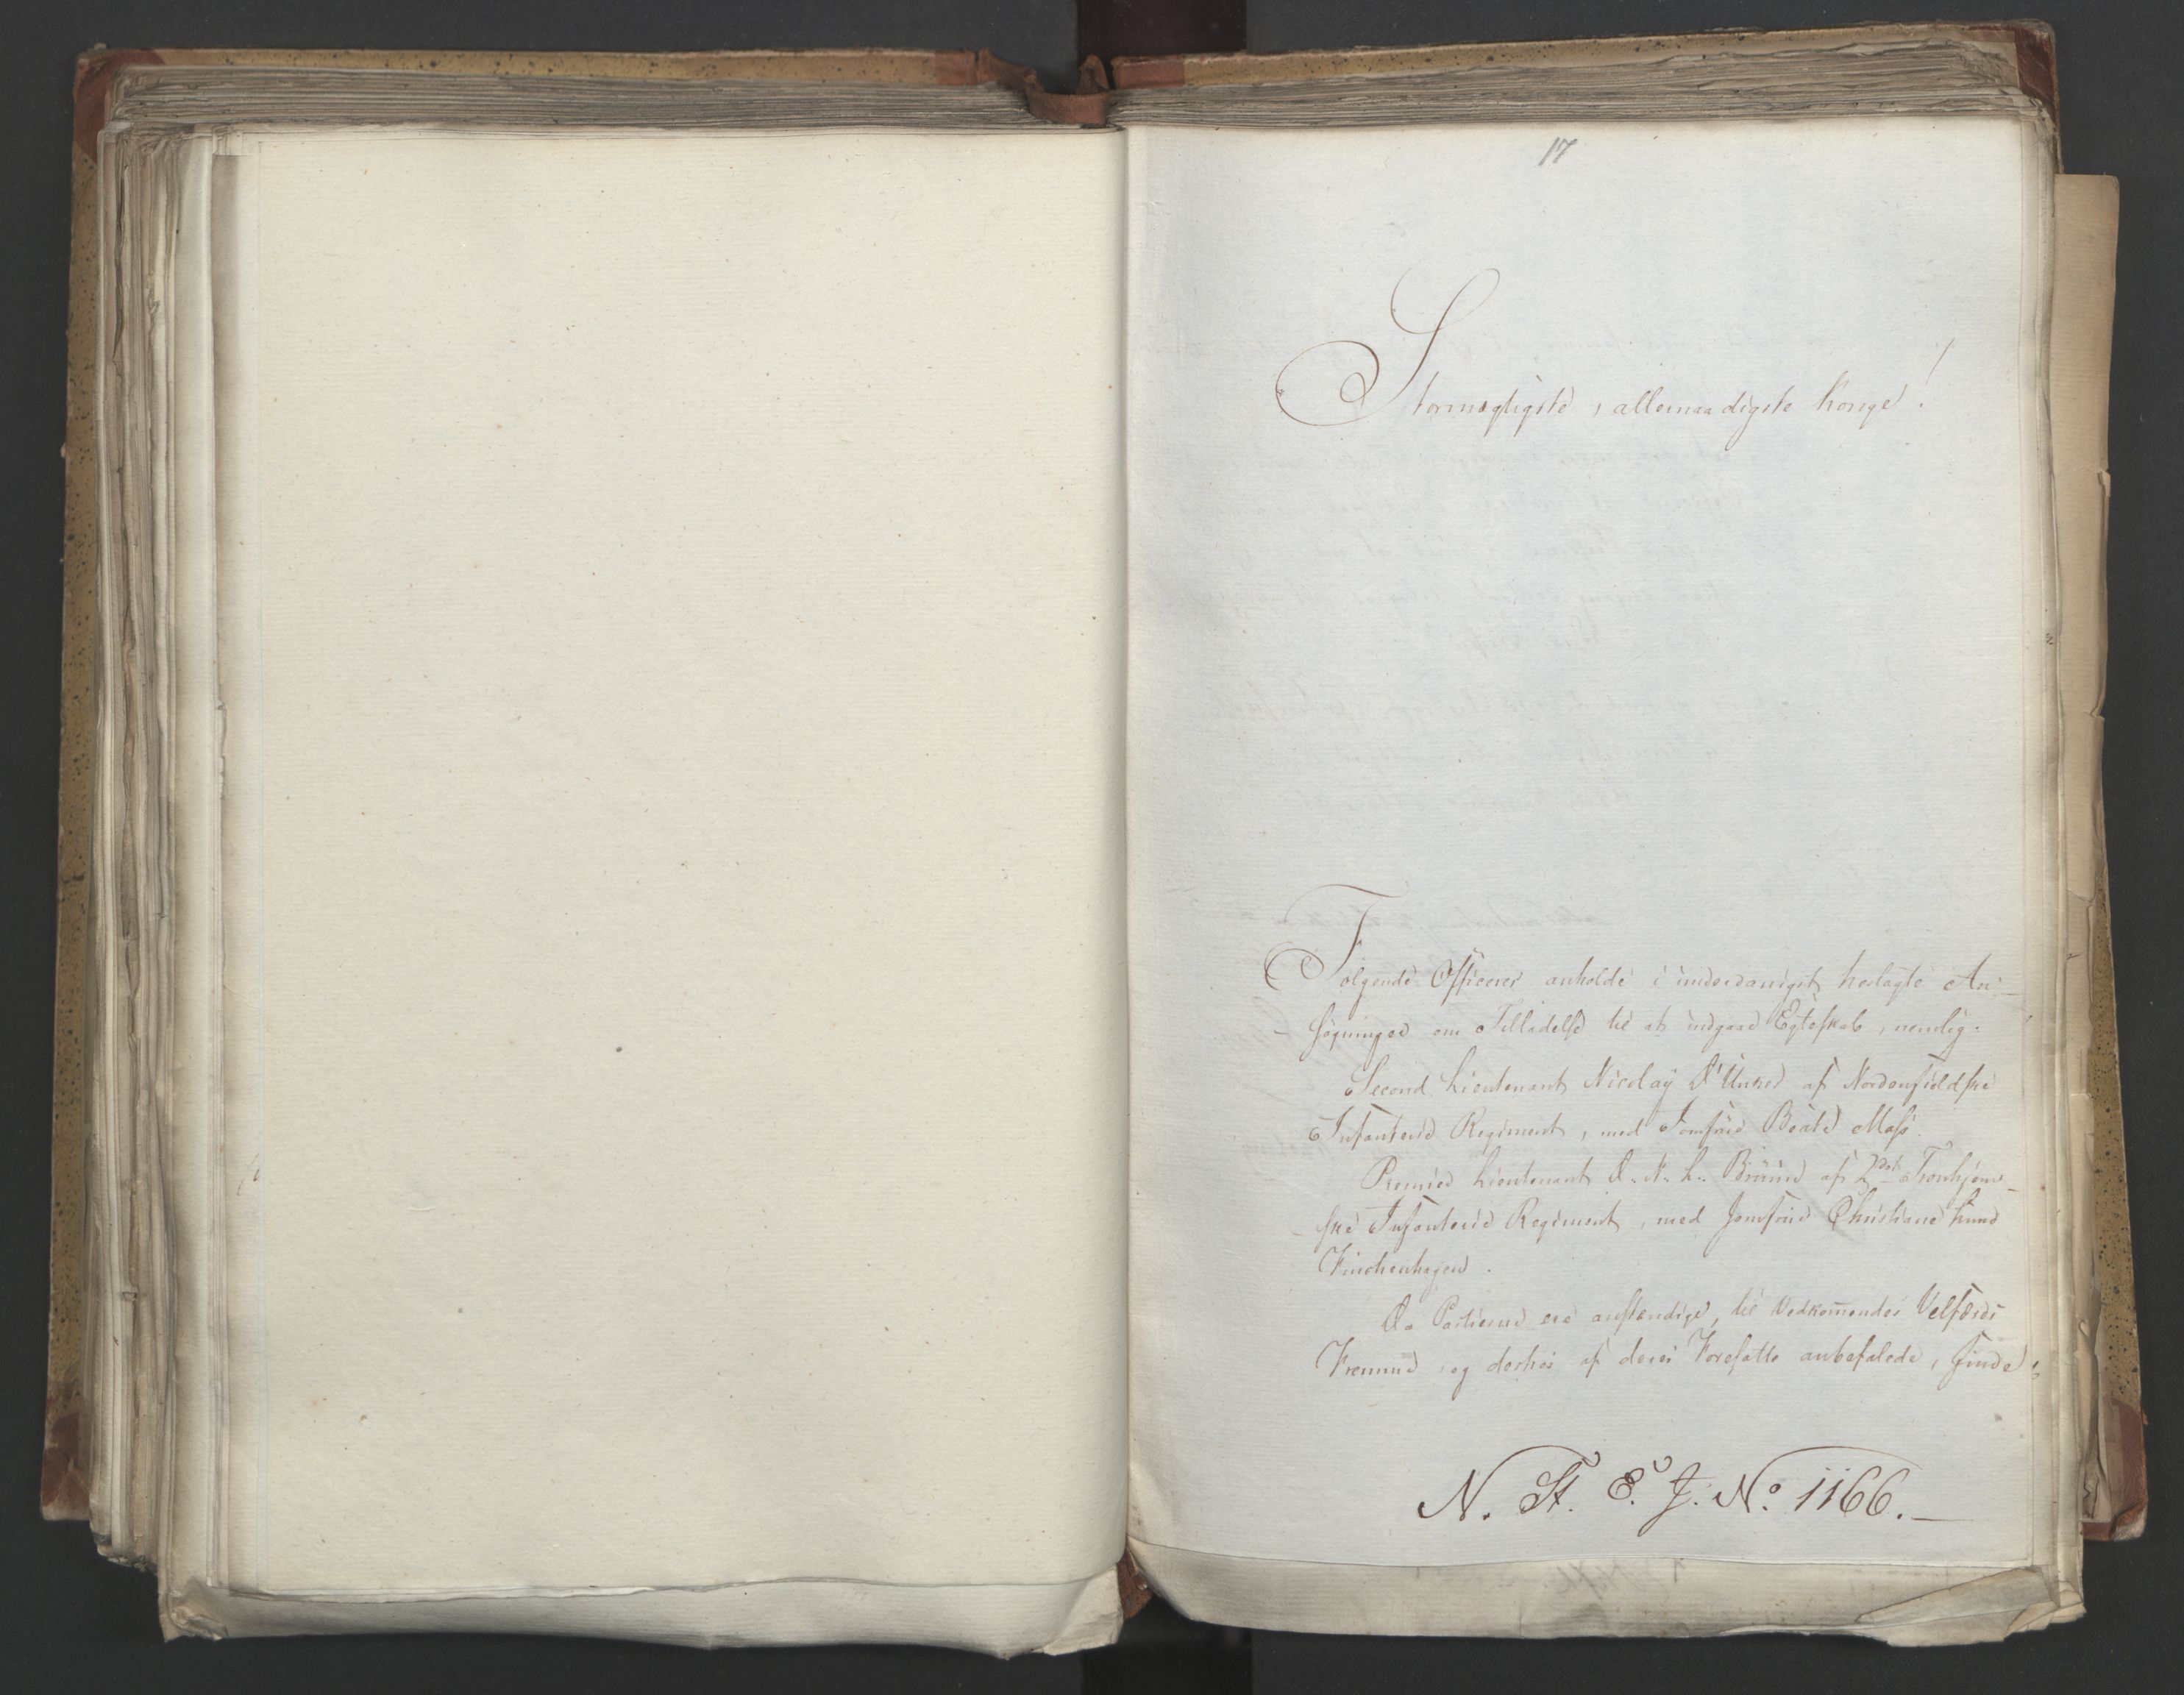 17
Stormægtigste, allernaadigste Konge!
Følgende Officerer anholde i underdanigst hoslagte An-
søgninger om Tilladelse til at indgaae Egteskab, nemlig:
Second Lieutenant Nicolay d'Unker af Nordenfieldske
Infanterie Regiment, med Jomfrue Beate Moss.
Premier Lieutenant D. A. L. Bruun af 2det Tronhjem-
ske Infanterie Regiment, med Jomfrue Christiane Lund
Finckenhagen.
Da Partierne ere anstændige, til Vedkom̅endes Velfærds
Fremme, og derhos af deres Foresatte anbefalede, finde
N. St. E. J. No. 1166.